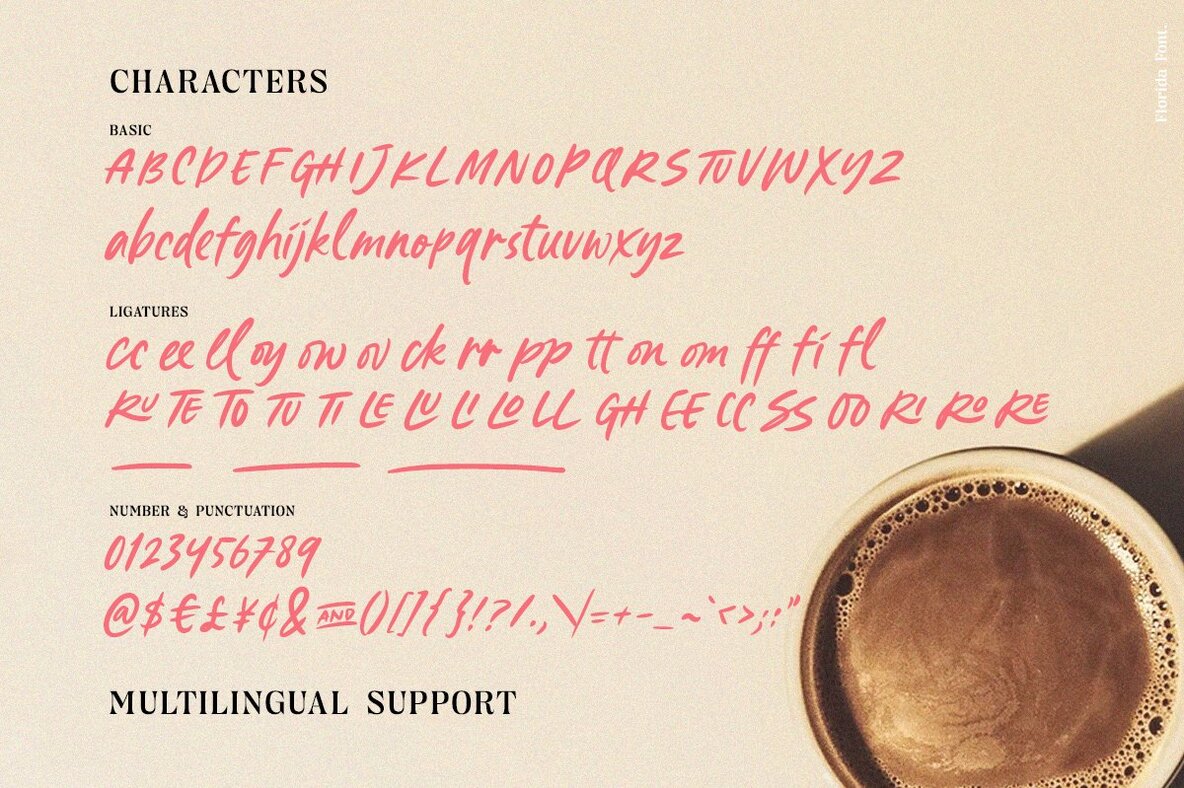 Florida Font.
CHARACTERS
BASIC
ABCDEFGHIJKLMNOPQRSTUVWXYZ
abcdefghijklmnopqrstuvwxyz
LIGATURES
cc ee ll oy ow ov ck rr pp tt on om ff fi fl
RU TE TO TU TI LE LU LI LO LL GH EE CC SS OO RI RO RE
NUMBER & PUNCTUATION
0123456789
@$€£¥¢& AND ()[]{}!?/.,\/=+-_~`<>;:"
MULTILINGUAL SUPPORT